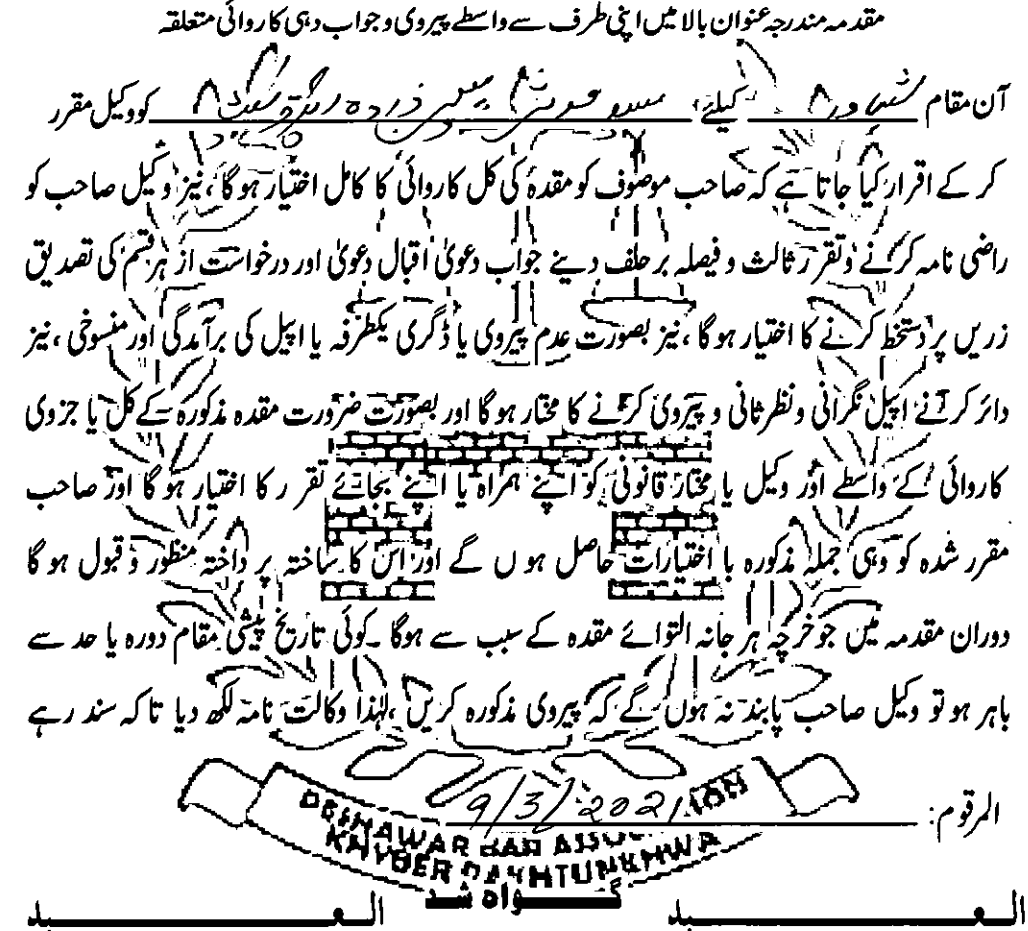 مقدمہ مندرجہ عنوان بالا میں اپنی طرف سے واسطے پیروی و جواب دہی کاروائی متعلقہ
آن مقام پشاور کیلئے کو وکیل مقرر
کر کے اقرار کیا جاتا ہے کہ صاحب موصوف کو مقدہ کی کل کاروائی کا کامل اختیار ہو گا، نیز وکیل صاحب کو
راضی نامہ کرنے وتقرر ثالث و فیصلہ برحلف دینے جواب دعویٰ اقبال دعویٰ اور درخواست از ہر قسم کی تصدیق
زریں پر دستخط کرنے کا اختیار ہو گا، نیز بصورت عدم پیروی یا ڈگری یکطرفہ یا اپیل کی برآمدگی اور منسوخی، نیز
دائر کرنے اپیل نگرانی ونظرثانی و پیروی کرنے کا مختار ہو گا اور بصورت ضرورت مقدہ مذکورہ کے کل یا جزوی
کاروائی کے واسطے اور وکیل یا مختار قانونی کو اپنے ہمراہ یا اپنے بجائے تقرر کا اختیار ہو گا اور صاحب
مقرر شدہ کو وہی جملہ مذکورہ با اختیارات حاصل ہوں گے اور اس کا ساختہ پر داختہ منظور وقبول ہو گا
دوران مقدمہ میں جو خرچہ ہر جانہ التوائے مقدہ کے سبب سے ہوگا۔ کوئی تاریخ پیشی مقام دورہ یا حد سے
باہر ہو تو وکیل صاحب پابند نہ ہوں گے کہ پیروی مذکورہ کریں، لہٰذا وکالت نامہ لکھ دیا تا کہ سند رہے
المرقوم: 9/3/2021
PESHAWAR BAR ASSOCIATION
KHYBER PAKHTUNKHWA
العبد گواہ شد العبد